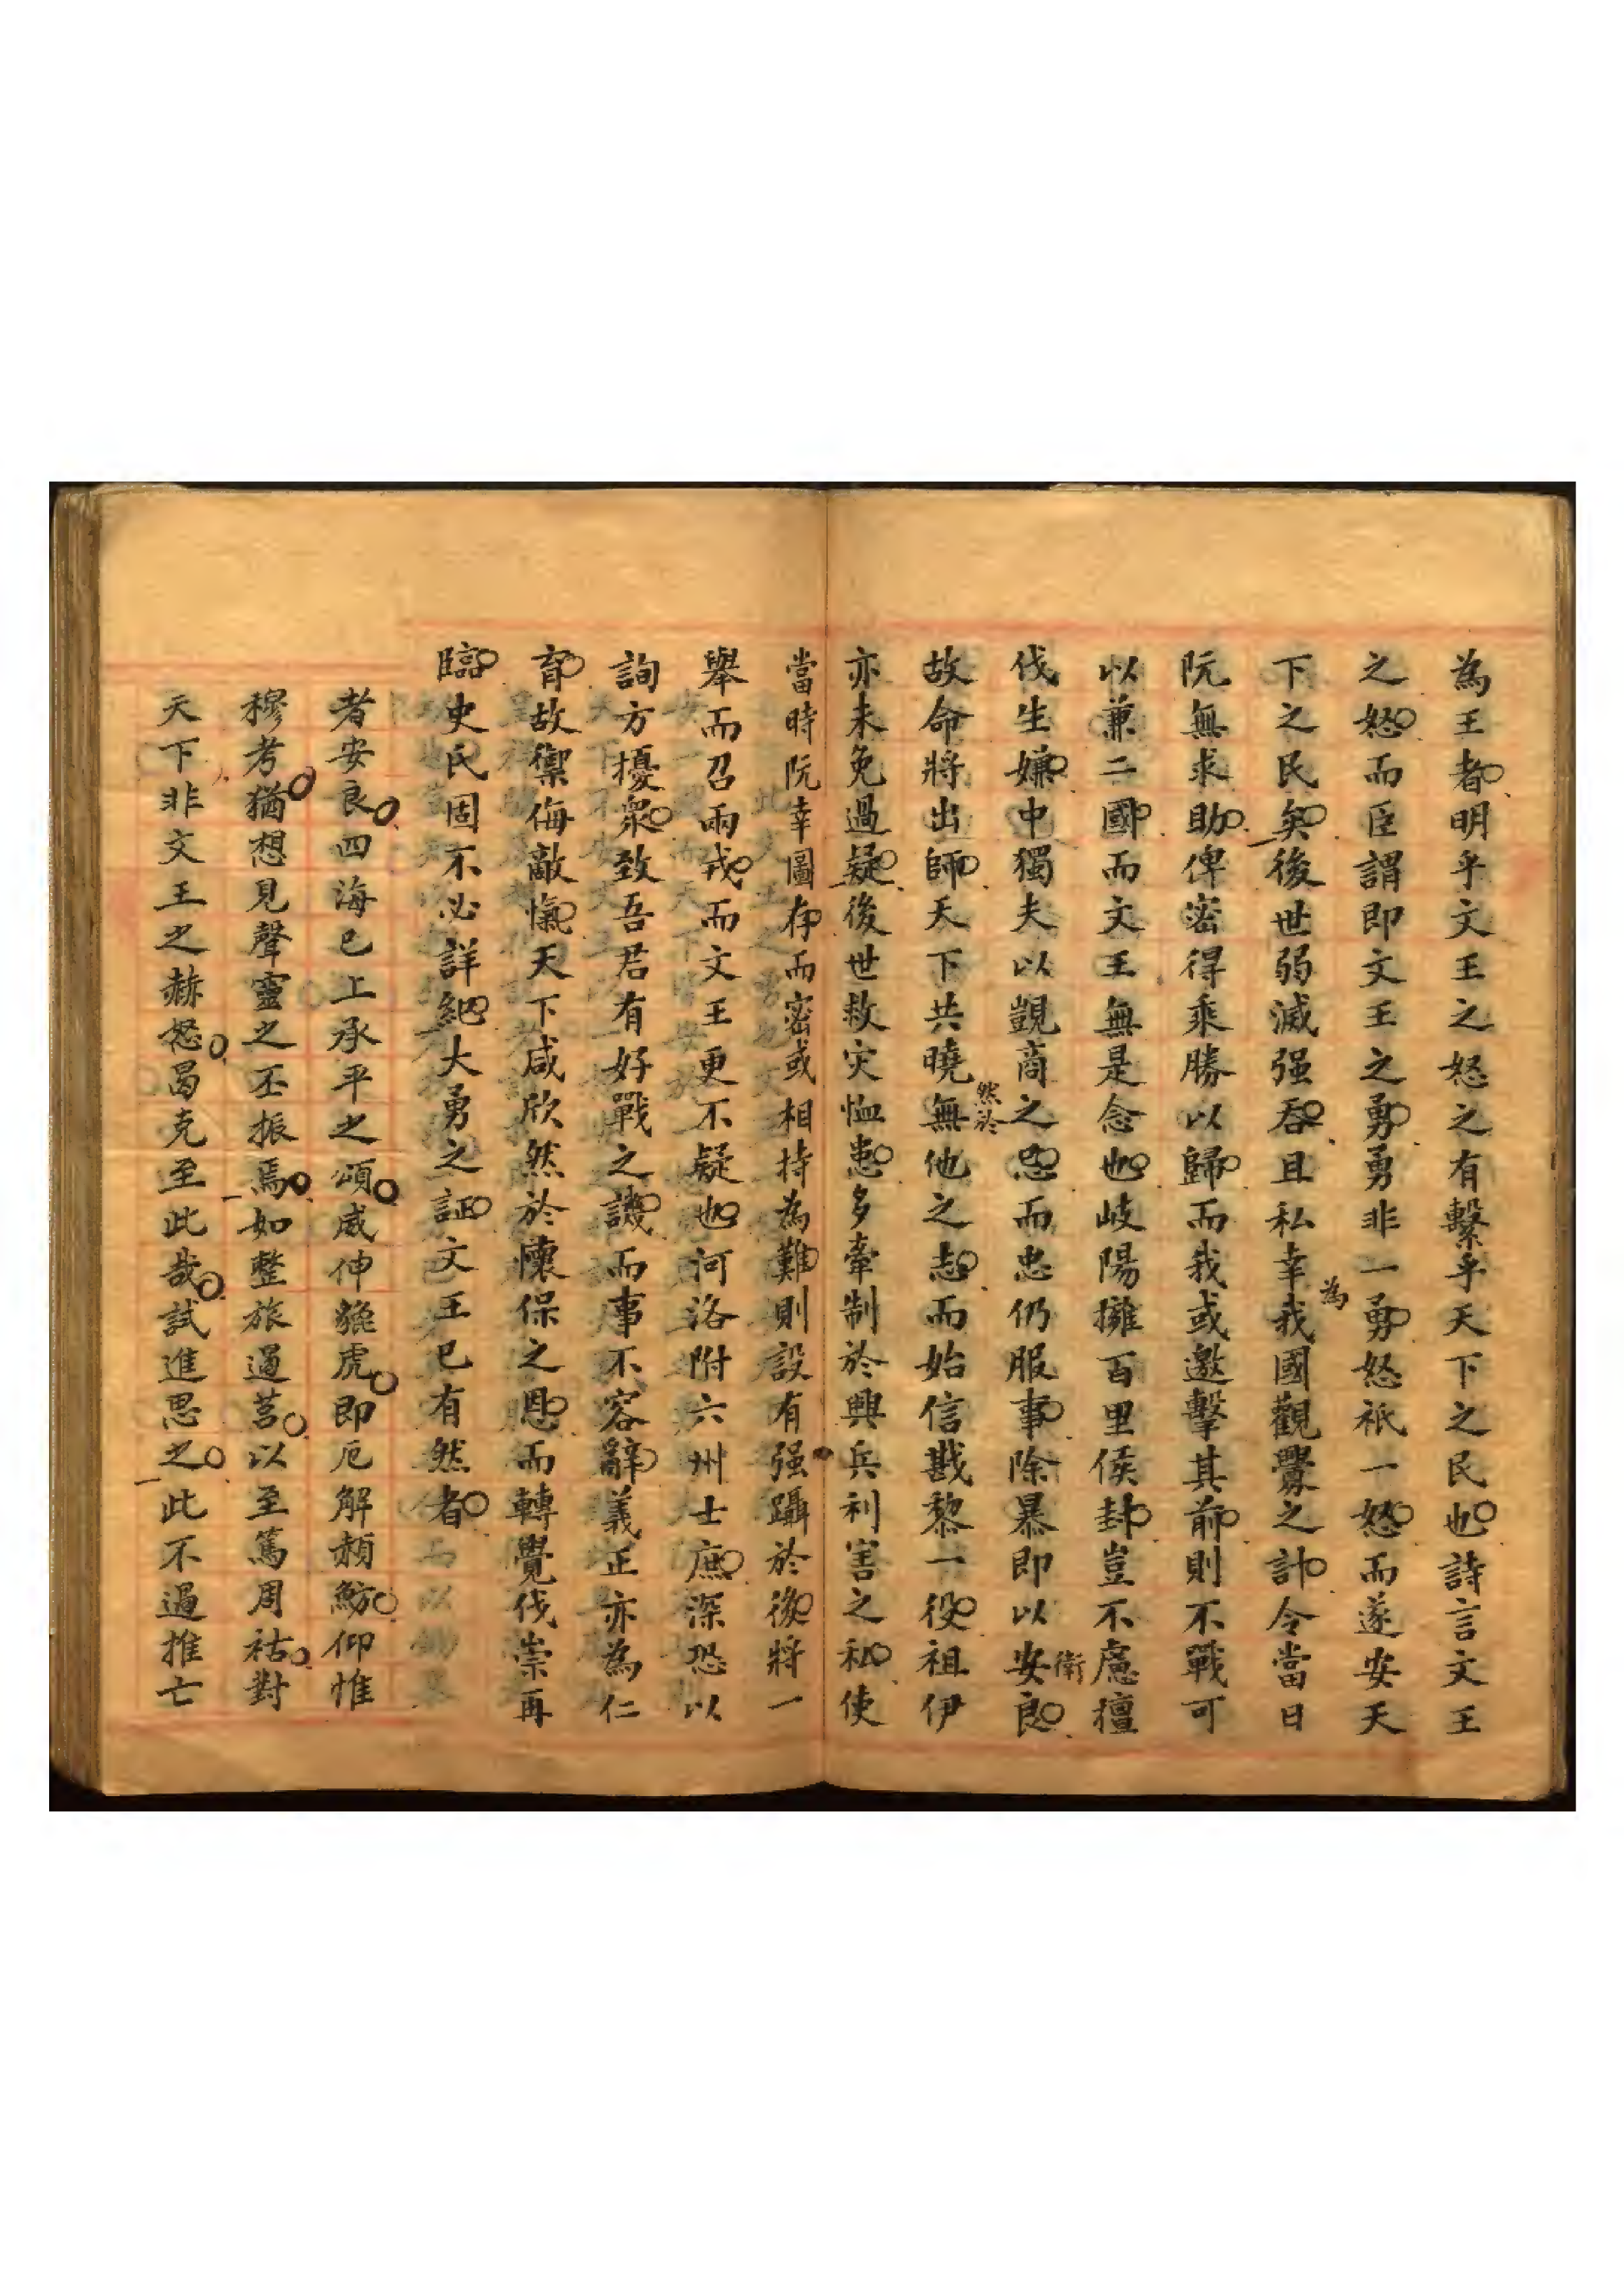 為王者明乎文王之怒之有繫乎天下之民也詩言文王
之怒而臣謂即文王之勇勇非一勇怒祇一怒而遂安天
下之民矣後世弱滅强吞且私幸為我國觀釁之計令當日
阮無求助俾密得乘勝以歸而我或邀擊其前則不戰可
以兼二國而文王無是念也岐陽擁百里侯封豈不慮擅
伐生嫌中獨夫以覬商之忌而忠仍服事除暴即以安衛良
故命將出師天下共曉然於無他之志而始信戡黎一役祖伊
亦未免過疑後世救灾恤患多牽制於興兵利害之私使
當時阮幸圖存而密或相持為難則設有强躡於後將一
舉而召兩戎而文王更不疑也河洛附六州士庶深恐以
詢方擾眾致吾君有好戰之譏而事不容辭義正亦為仁
育故禦侮敵愾天下咸欣然於懷保之恩而轉覺伐崇再
臨史氏固不必詳紀大勇之証文王已有然者
者安良四海已上承平之頌威伸貔虎即厄解頳魴仰惟
穆考猶想見聲靈之丕振焉如整旅遏莒以至篤周祜對
天下非文王之赫怒曷克至此哉試進思之此不過推亡